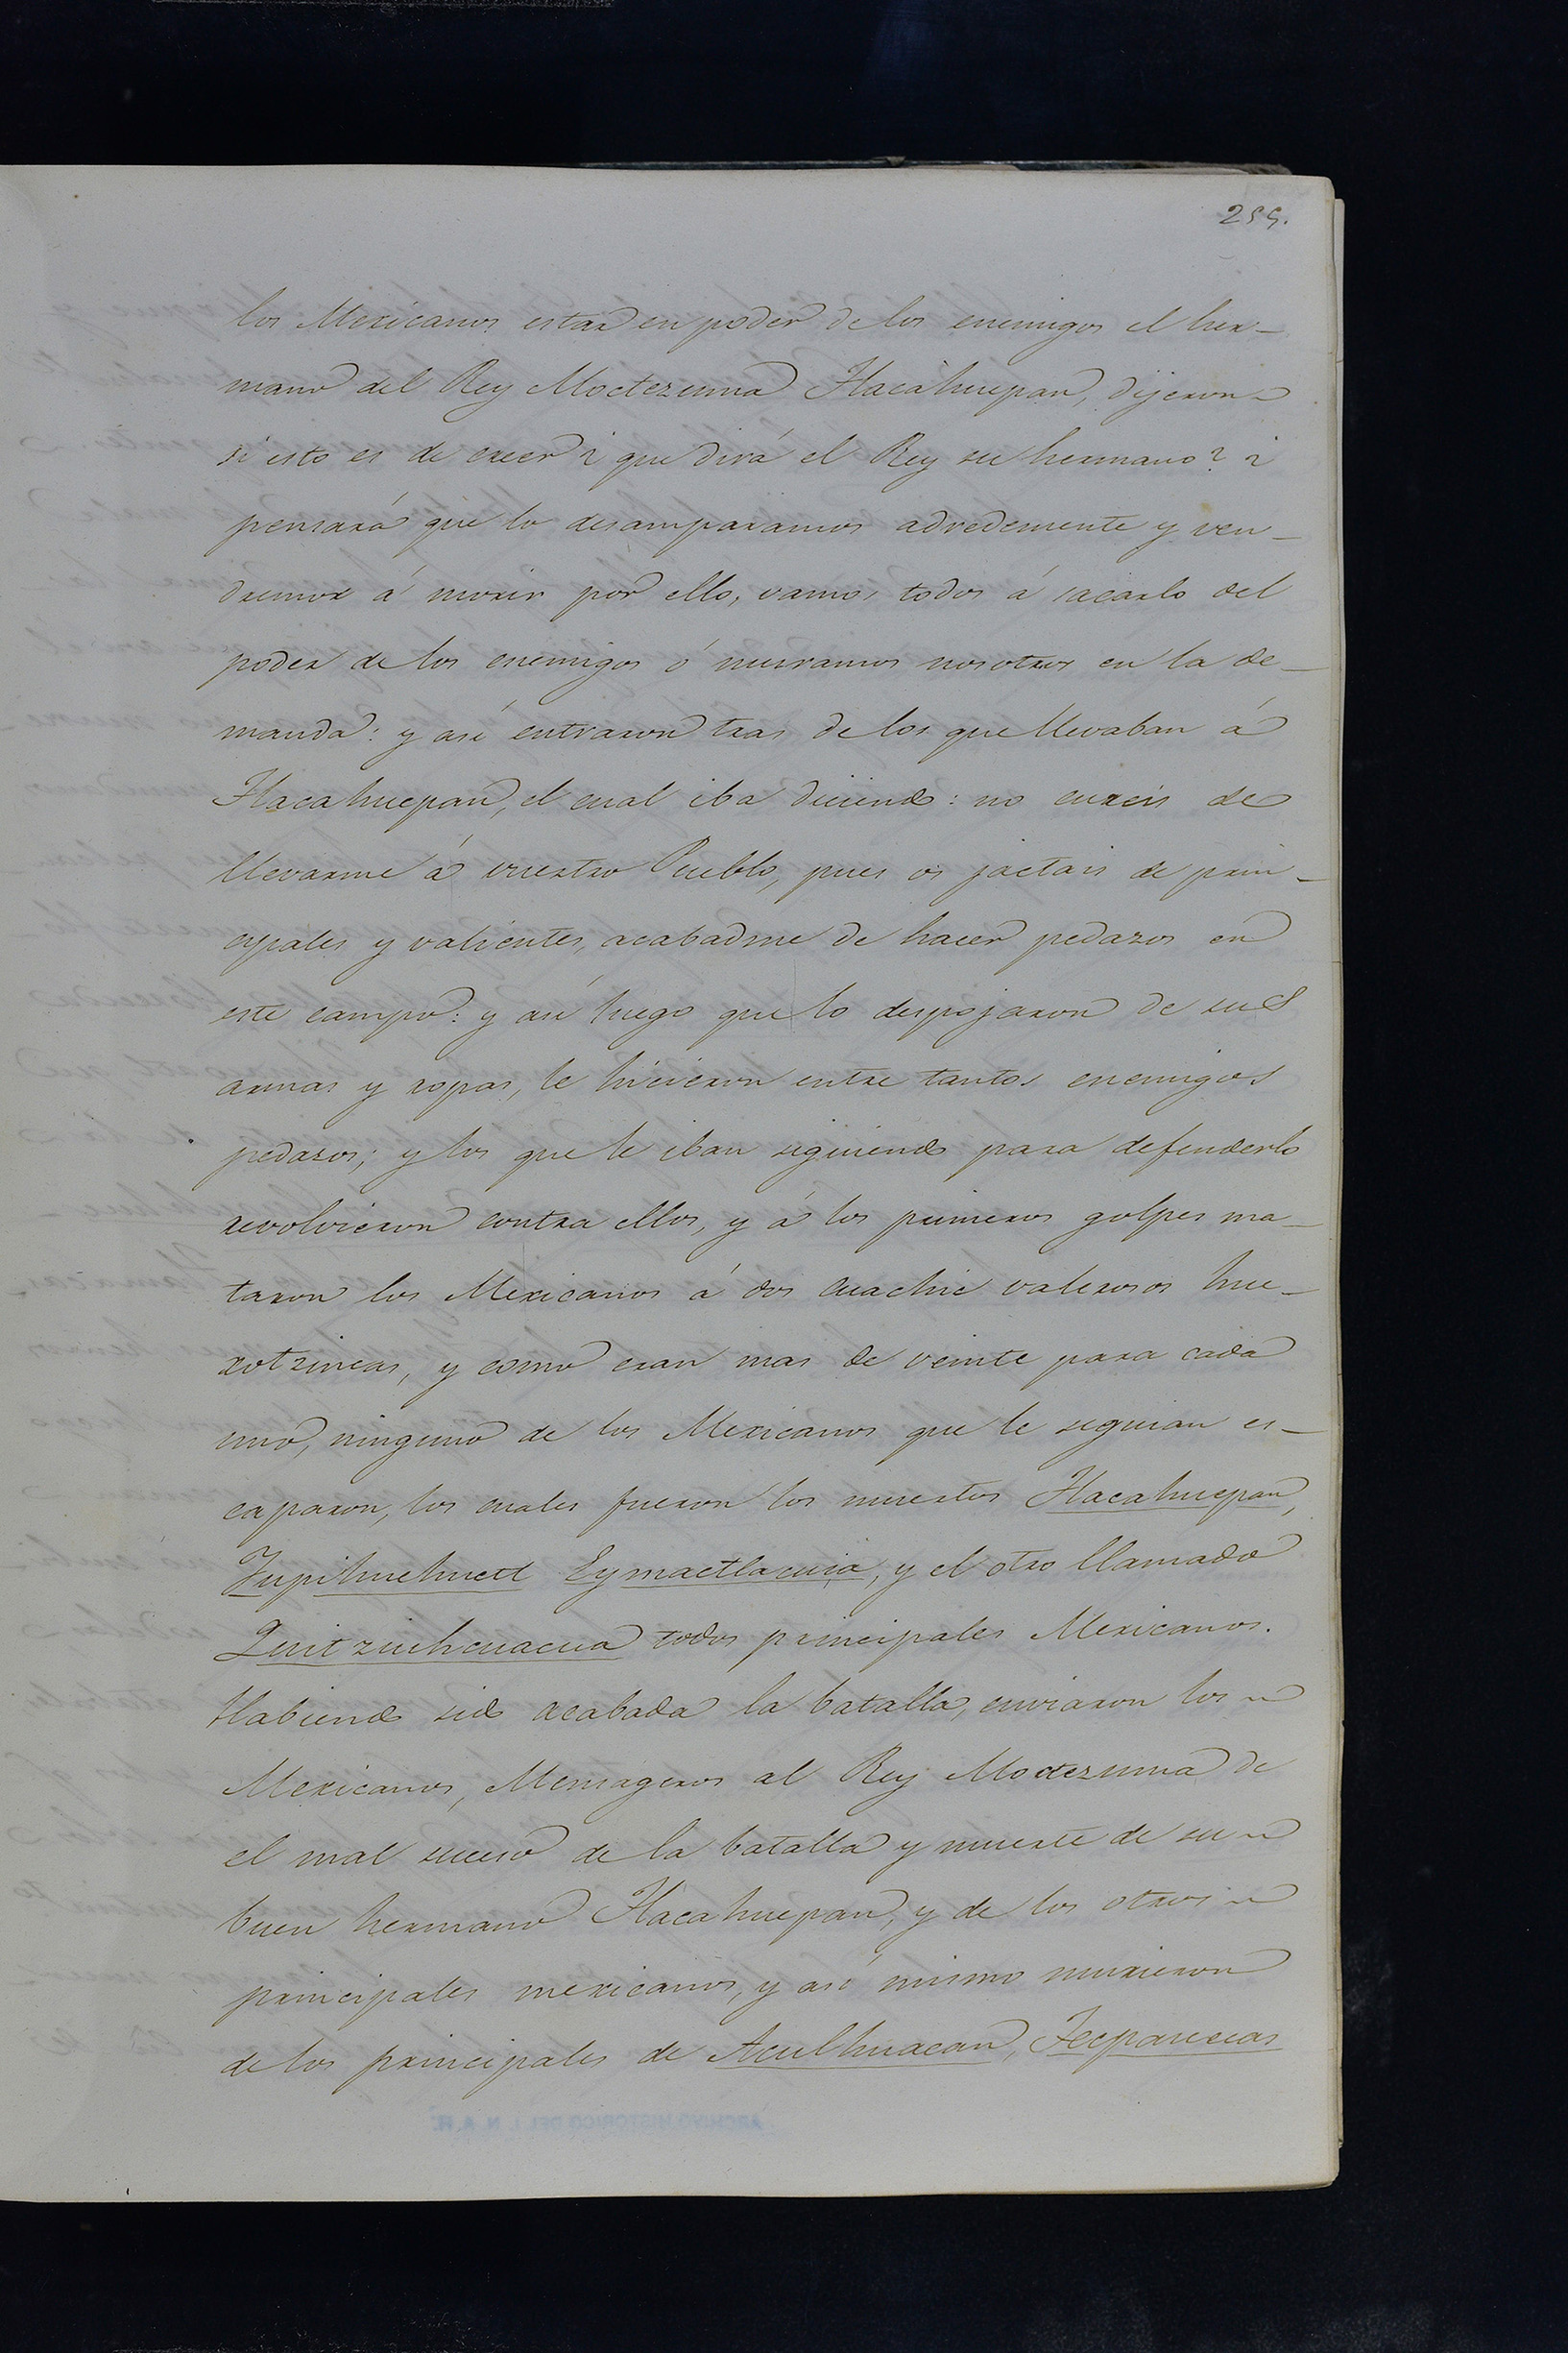 299.
los Mexicanos estar en poder de los enemigos el her-
mano del Rey Moctezuma Tlacahuepan, dijeron
si esto es de creer ¿ que dirá el Rey su hermano? ¿
pensará que lo desamparamos adredemente y ven-
dremos á morir por ello, vamos todos á sacarlo del
poder de los enemigos ó muramos nosotros en la de-
manda: y asi entraron tras de los que llevaban á
Tlacahuepan, el cual iba diciendo: no cureis de
llevarme á vuestro Pueblo, pues os jactais de prin-
cipales y valientes, acabadme de hacer pedazos en
este campo: y asi luego que lo despojaron de sus
armas y ropas, le hicieron entre tantos enemigos
pedazos; y los que le iban siguiendo para defenderlo
revolvieron contra ellos, y á los primeros golpes ma-
taron los Mexicanos á dos Cuachic valerosos hue-
xotzincas, y como eran mas de veinte para cada
uno, ninguno de los Mexicanos que le seguian es-
caparon, los cuales fueron los muertos Tlacahuepan,
Tupihuehuetl Eymactlacuia, y el otro llamado
Quitzicuhcuacua todos principales Mexicanos.
Habiendo sido acabada la batalla, enviaron los
Mexicanos, Mensageros al Rey Moctezuma de
el mal suceso de la batalla y muerte de su
buen hermano Tlacahuepan, y de los otros
principales mexicanos, y asi mismo murieron
de los principales de Aculhuacan, Tecpanecas
ARCHIVO HISTORICO DEL I. N. A. H.